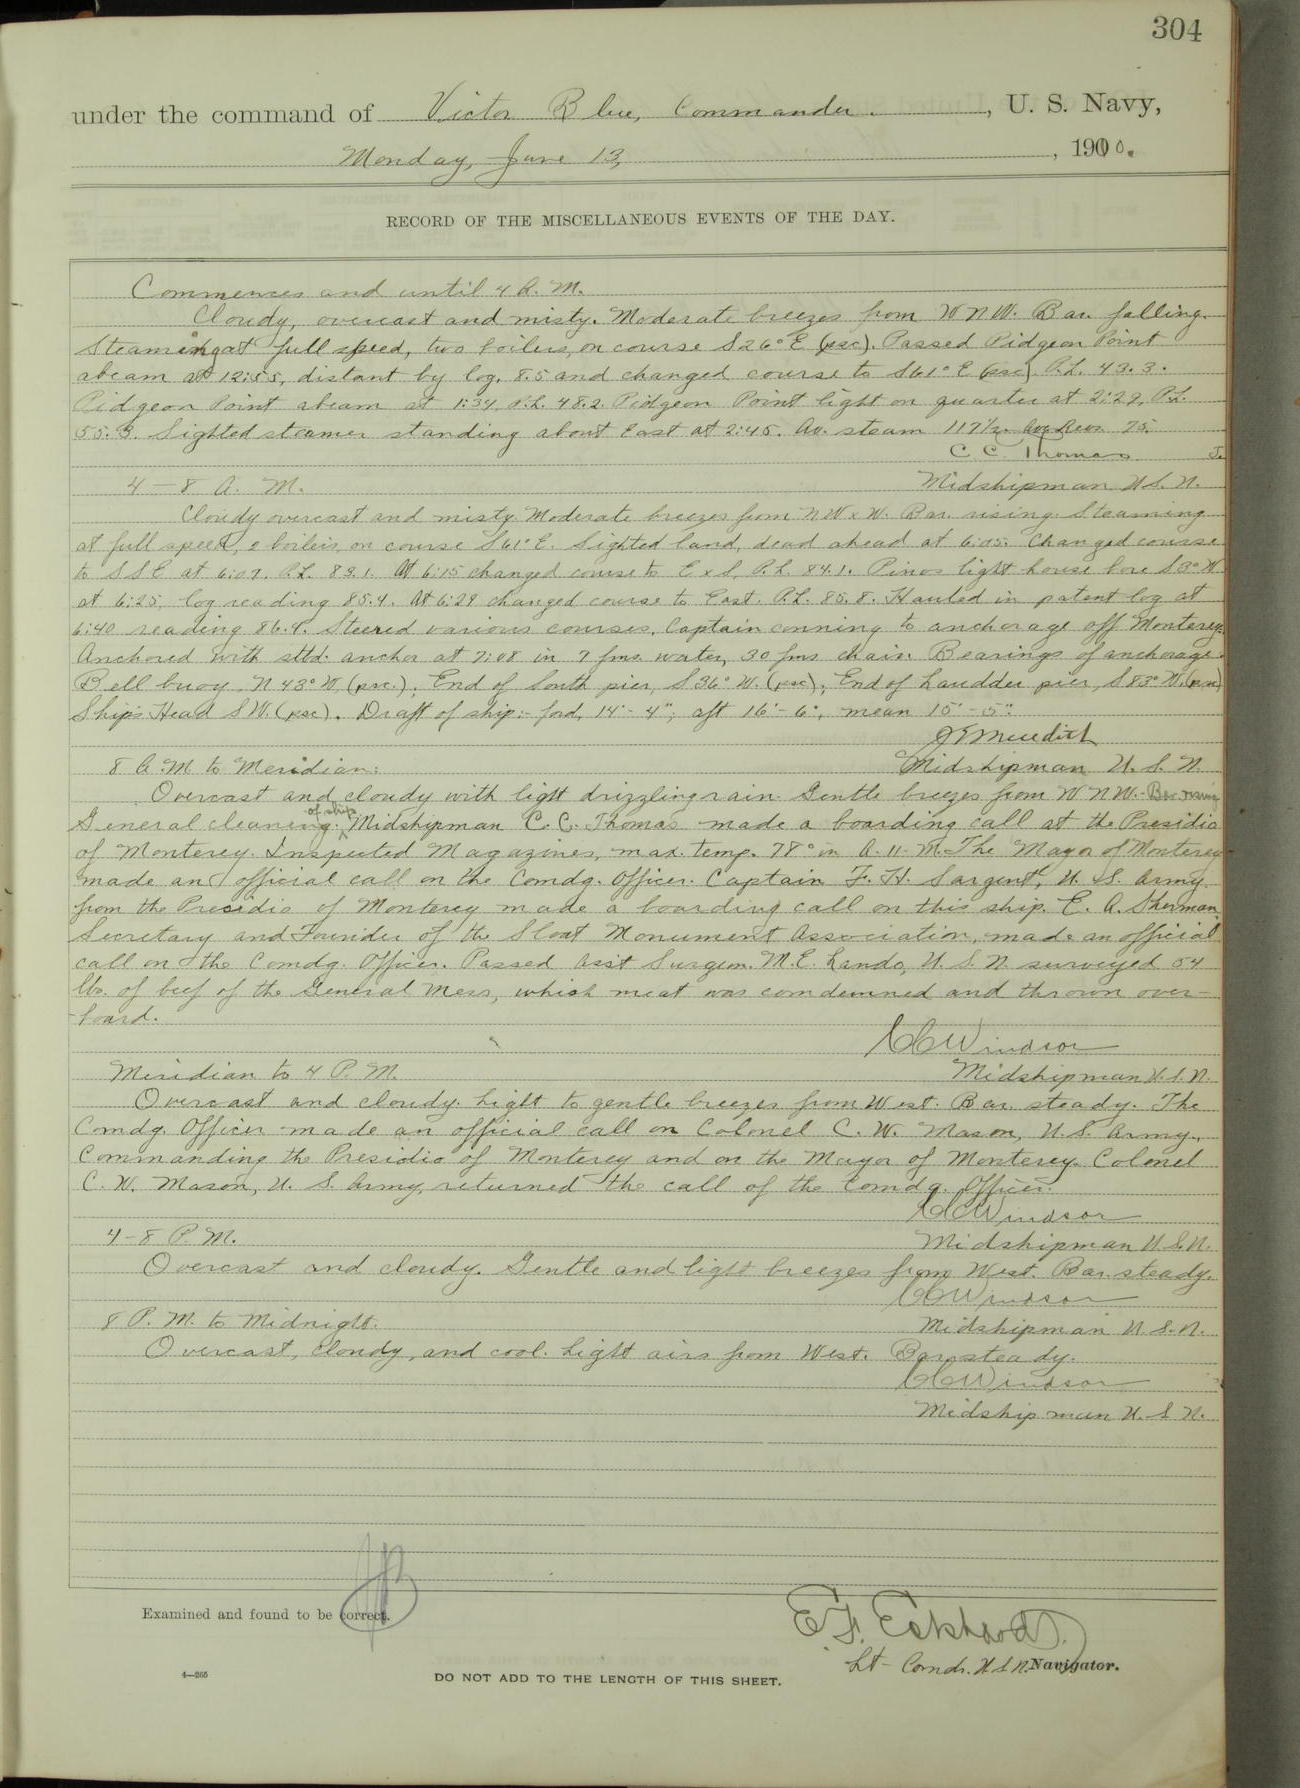 304
under the command of Victor Blue, Commander. , U. S. Navy,
Monday, June 13, , 1910.
RECORD OF THE MISCELLANEOUS EVENTS OF THE DAY.
Commences and until 4 A. M.
Cloudy, overcast and misty. Moderate breezes from W N W. Bar. falling.
Steaming at full speed, two boilers, on course S 26° E (psc). Passed Pidgeon Point
abeam at 12:55, distant by log, 8.5 and changed course to S 61° E (psc) P.L. 43.3.
Pidgeon Point abeam at 1:34, P.L. 48.2. Pidgeon Point light on quarter at 2:29, P.L.
55.3. Sighted steamer standing about East at 2:45. Av. steam 117½. Av. Revs 75.
C C Thomas
4 – 8 A. M. Midshipman U.S.N.
Cloudy overcast and misty. Moderate breezes from N W x W. Bar. rising. Steaming
at full speed, 2 boilers, on course S 61° E. Sighted land, dead ahead at 6:05. Changed course
to S S E at 6:07. P.L. 83.1. At 6:15 changed course to E x S, P.L. 84.1. Pinos light house bore S 3° W
at 6:25, log reading 85.4. At 6:29 changed course to East. P.L. 85.8. Hauled in patent log at
6:40 reading 86.9. Steered various courses, Captain conning to anchorage off Monterey.
Anchored with stbd. anchor at 7:08 in 7 fms. water, 30 fms chain. Bearings of anchorage:
Bell buoy, N 43° W. (psc.); End of South pier, S 36° W. (psc); End of Laudder pier, S 83° W. (psc)
Ship's Head S W. (psc). Draft of ship:- ford, 14' - 4"; aft 16' - 6", mean 15' - 5".
J E Meredith
8 A. M. to Meridian: Midshipman U. S. N.
Overcast and cloudy with light drizzling rain. Gentle breezes from W N W. Bar. rising
General cleaning of ship. Midshipman C. C. Thomas made a boarding call at the Presidio
of Monterey. Inspected Magazines, max. temp. 78° in A-11-M. The Mayor of Monterey
made an official call on the Comdg. Officer. Captain F. H. Sargent, U. S. Army
from the Presidio of Monterey made a boarding call on this ship. E. A. Sherman
Secretary and Founder of the Sloat Monument Association, made an official
call on the Comdg. Officer. Passed Ass't Surgeon. M. E. Lando, U. S. N. surveyed 54
lbs. of beef of the General Mess, which meat was condemned and thrown over-
board.
C C Windsor
Meridian to 4 P. M. Midshipman U. S. N.
Overcast and cloudy. Light to gentle breezes from West. Bar. steady. The
Comdg. Officer made an official call on Colonel C. W. Mason, U. S. Army,
Commanding the Presidio of Monterey and on the Mayor of Monterey. Colonel
C. W. Mason, U. S. Army, returned the call of the Comdg. Officer.
C C Windsor
4 - 8 P. M. Midshipman U. S. N.
Overcast and cloudy. Gentle and light breezes from West. Bar. steady.
C C Windsor
8 P. M. to Midnight. Midshipman U. S. N.
Overcast, cloudy, and cool. Light airs from West. Bar. steady.
C C Windsor
Midshipman U. S. N.
Examined and found to be correct.
Lt - Comdr. U S N. Navigator.
4—265
DO NOT ADD TO THE LENGTH OF THIS SHEET.